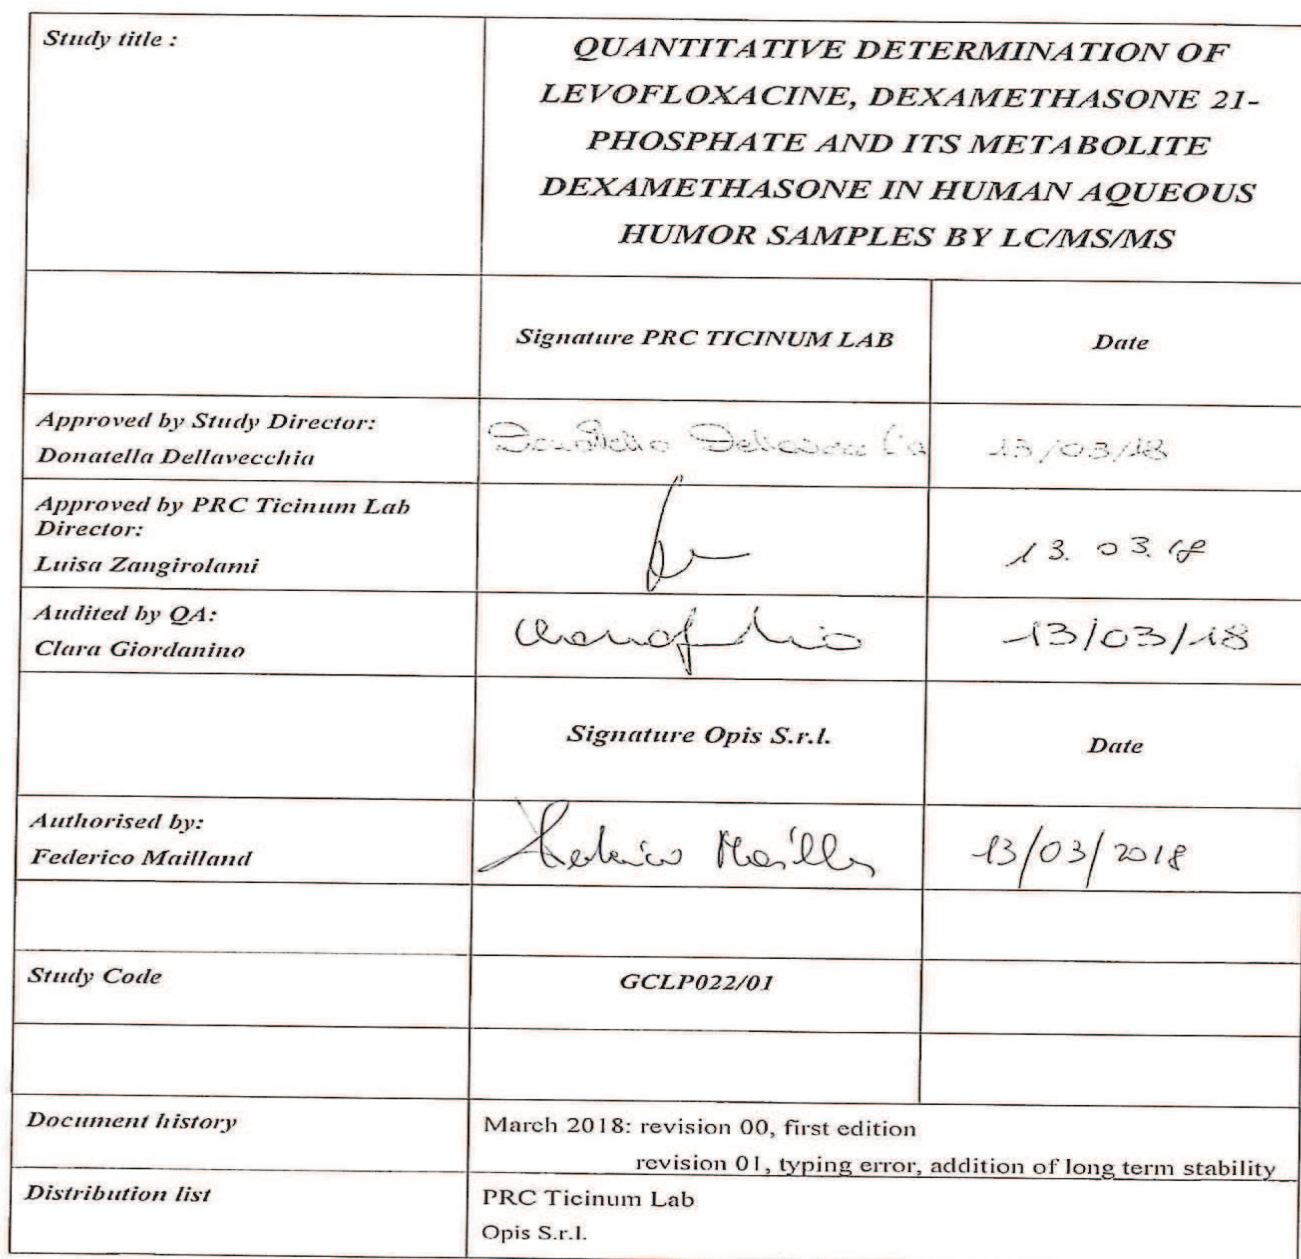 Study title :
QUANTITATIVE DETERMINATION OF
LEVOFLOXACINE, DEXAMETHASONE 21-
PHOSPHATE AND ITS METABOLITE
DEXAMETHASONE IN HUMAN AQUEOUS
HUMOR SAMPLES BY LC/MS/MS
Signature PRC TICINUM LAB
Date
Approved by Study Director:
Donatella Dellavecchia
13/03/18
Approved by PRC Ticinum Lab
Director:
Luisa Zangirolami
13.03.18
Audited by QA:
Clara Giordanino
13/03/18
Signature Opis S.r.l.
Date
Authorised by:
Federico Mailland
Federico Mailland
13/03/2018
Study Code
GCLP022/01
Document history
March 2018: revision 00, first edition
revision 01, typing error, addition of long term stability
Distribution list
PRC Ticinum Lab
Opis S.r.l.